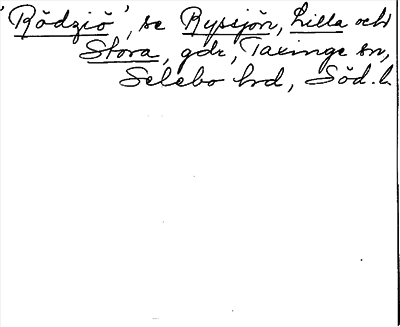 'Rödziö', se Ryssjön, Lilla och
Stora, gdr, Taxinge sn,
Selebo hrd, Söd. l.